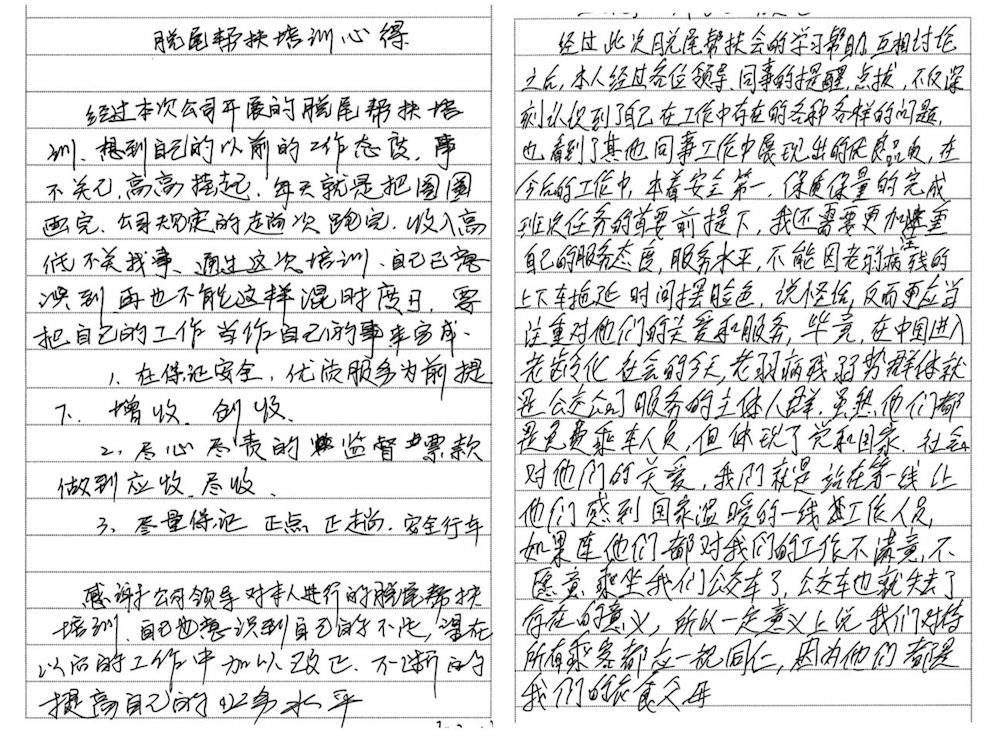 脱尾帮扶培训心得
经过本次公司开展的脱尾帮扶培
训、想到自己的以前的工作态度，事
不关己，高高挂起．每天就是把圈圈
画完．公司规定的走尚次跑完．收入高
低不关我事、通过这次培训、自己已意
识到再也不能这样混时度日，要
把自己的工作当作自己的事来完成．
1、在保证安全．优质服务为前提
下．增收．创收．
2、尽心尽责的监督票款
做到应收．尽收．
3、尽量保证 正点 正趟．安全行车
感谢于公司领导对本人进行的脱尾帮扶
培训．自己也意识到自己的不足，望在
以后的工作中加以改正．不断的
提高自己的业务水平
经过此次脱尾帮扶会的学习帮助，互相讨论
之后，本人经过各位领导、同事的提醒，点拔，不仅深
刻认识到了自己在工作中存在的各种各样的问题，
也看到了其他同事工作中展现出的优良品质，在
今后的工作中，本着安全第一，保质保量的完成
班次任务的首要前提下，我还需要更加注重
自己的服务态度，服务水平，不能因老弱病残的
上下车拖延时间摆脸色，说怪话，反而更应当
注重对他们的关爱和服务，毕竟，在中国进入
老龄化社会的今天，老弱病残弱势群体就
是公交公司服务的主体人群．虽然他们都
是免费乘车人员，但体现了党和国家、社会
对他们的关爱，我们就是站在第一线让
他们感到国家温暖的一线工作人员，
如果连他们都对我们的工作不满意，不
愿意乘坐我们公交车了，公交车也就失去了
存在的意义，所以一定意义上说我们对待
所有乘客都应一视同仁，因为他们都是
我们的衣食父母